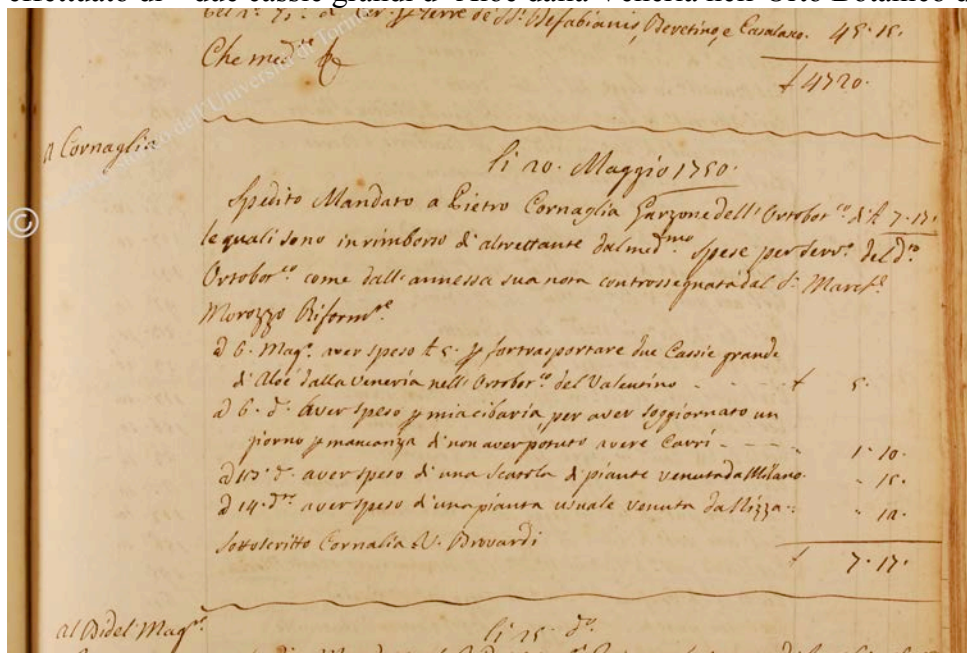 effettuato di " due cassie grandi d' Aloe dalla Veneria nell'Orto Botanico d
Befabianis, Bevetino, e Casalaxo. 45. 15.
Che med.mo
£ 4720.
A Cornaglia
li 20. Maggio 1750.
Spedito Mandato a Pietro Cornaglia Garzone dell'Ortobot.co di £ 7. 17.
le quali sono in rimborso di altrettante dal med.mo spese per serv.o del d.to
Ortobot.co come dall'annessa sua nota controssegnata dal S.r March.e
Morozzo Riform.re
a 6. Mag.o aver speso £ 5. p far trasportare due Cassie grande
d'Aloè dalla Veneria nell'Ortobot.co del Valentino - - - £ 5.
a 6. d.o aver speso p mia cibaria, per aver soggiornato un
giorno p mancanza di non aver potuto avere Carri - - - 1. 10.
a 13. d.o aver speso di una scatola di piante venuta da Milano. " 15.
a 14. d.to aver speso d'una pianta usuale venuta da Nizza - " 12.
Sottoscritto Cornalia. V. Brovardi
£ 7. 17.
al Bidel Mag.re
li 25. d.o
©
Archivio storico dell'Università di Torino